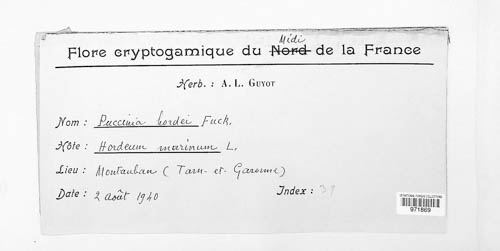 Midi
Flore cryptogamique du Nord de la France
Herb. : A. L. GUYOT
Nom : Puccinia hordei Fuck.
Hôte : Hordeum marinum L.
Lieu : Montauban ( Tarn-et-Garonne)
Date : 2 août 1940
Index : 39
971869